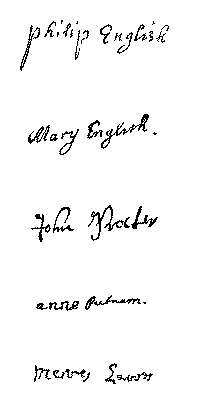 philip English
Mary English.
John Procter
anne putnam.
mercy Lewis